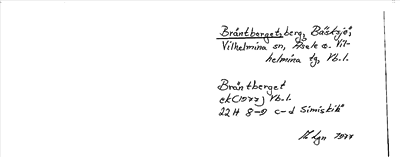 Bråntberget, berg, Bäsksjö,
Vilhelmina sn, Åsele o. Vil-
helmina tg, Vb.l.
Bråntberget
ek(1977) Vb.l.
22H 8-9 c-d Simiskilå
Lgn 1977